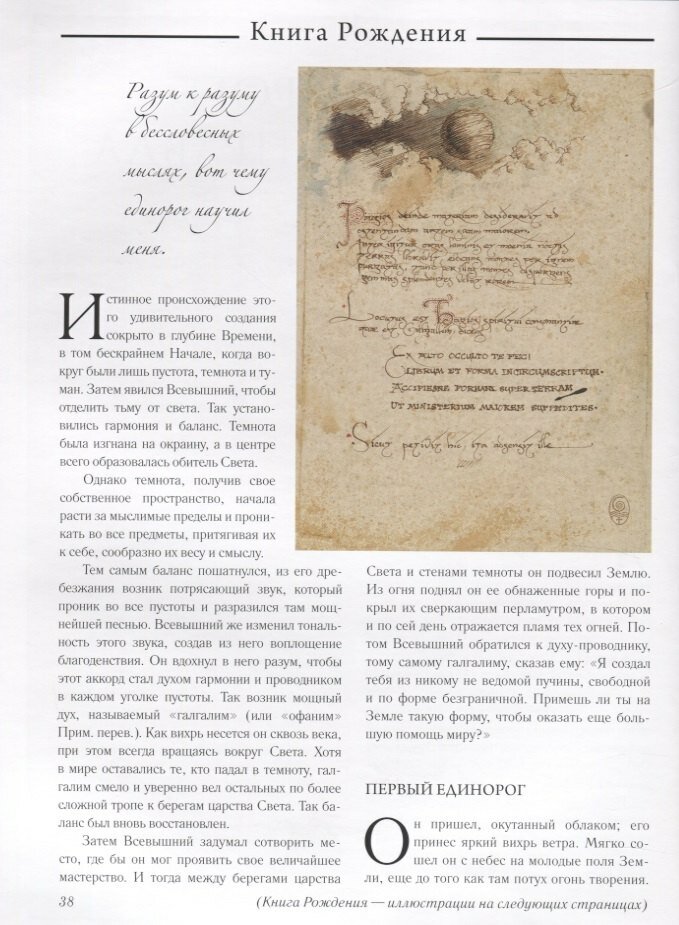 Книга Рождения
Разум к разуму
в бессловесных
мыслях, вот чему
единорог научил
меня.
Истинное происхождение это-
го удивительного создания
сокрыто в глубине Времени,
в том бескрайнем Начале, когда во-
круг были лишь пустота, темнота и ту-
ман. Затем явился Всевышний, чтобы
отделить тьму от света. Так устано-
вились гармония и баланс. Темнота
была изгнана на окраину, а в центре
всего образовалась обитель Света.
Однако темнота, получив свое
собственное пространство, начала
расти за мыслимые пределы и прони-
кать во все предметы, притягивая их
к себе, сообразно их весу и смыслу.
Тем самым баланс пошатнулся, из его дре-
безжания возник потрясающий звук, который
проник во все пустоты и разразился там мощ-
нейшей песнью. Всевышний же изменил тональ-
ность этого звука, создав из него воплощение
благоденствия. Он вдохнул в него разум, чтобы
этот аккорд стал духом гармонии и проводником
в каждом уголке пустоты. Так возник мощный
дух, называемый «галгалим» (или «офаним»
Прим. перев.). Как вихрь несется он сквозь века,
при этом всегда вращаясь вокруг Света. Хотя
в мире оставались те, кто падал в темноту, гал-
галим смело и уверенно вел остальных по более
сложной тропе к берегам царства Света. Так ба-
ланс был вновь восстановлен.
Затем Всевышний задумал сотворить ме-
сто, где бы он мог проявить свое величайшее
мастерство. И тогда между берегами царства
deinde materiam desideravit ad
EX ALTO OCCULTO TE FECI
LIBRUM ET FORMA INCIRCUMSCRIPTUM.
SUPER TERRAM
UT MINISTERIUM MAIOREM SUPPEDITES.
Света и стенами темноты он подвесил Землю.
Из огня поднял он ее обнаженные горы и по-
крыл их сверкающим перламутром, в котором
и по сей день отражается пламя тех огней. По-
том Всевышний обратился к духу-проводнику,
тому самому галгалиму, сказав ему: «Я создал
тебя из никому не ведомой пучины, свободной
и по форме безграничной. Примешь ли ты на
Земле такую форму, чтобы оказать еще боль-
шую помощь миру?»
ПЕРВЫЙ ЕДИНОРОГ
Он пришел, окутанный облаком; его
принес яркий вихрь ветра. Мягко со-
шел он с небес на молодые поля Зем-
ли, еще до того как там потух огонь творения.
38
(Книга Рождения — иллюстрации на следующих страницах)